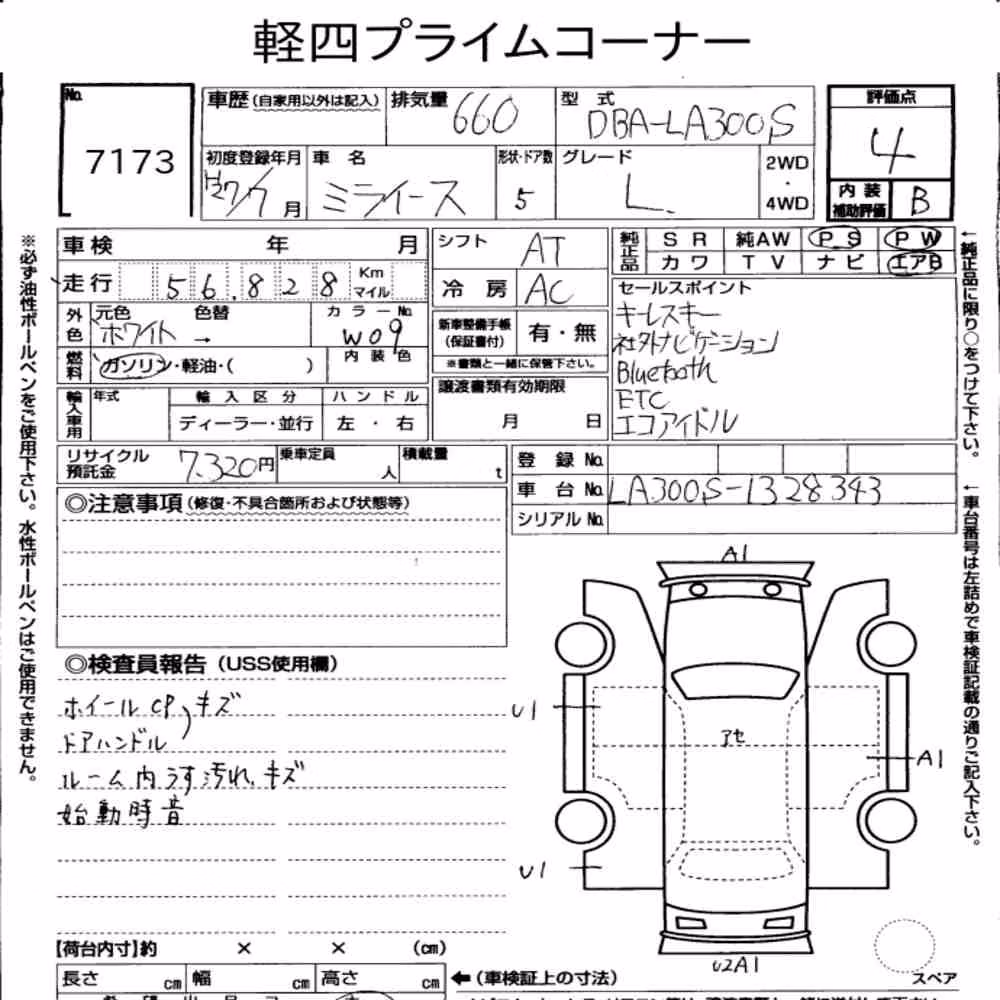 軽四プライムコーナー
No.
7173
車歴(自家用以外は記入)
排気量
660
型 式
DBA-LA300S
評価点
4
初度登録年月
H27/7月
車 名
ミライース
形状・ドア数
5
グレード
L.
2WD
・
4WD
内 装
補助評価
B
車 検 年 月
シフト
AT
純正品
S R 純AW P S P W
カワ T V ナビ エアB
走行 56.828 Km マイル
冷 房
AC
セールスポイント
キーレスキー
社外ナビゲーション
Bluetooth
ETC
エコアイドル
外色
元色
ホワイト →
色替
カラーNo.
W09
燃料
ガソリン・軽油・( )
内 装 色
新車整備手帳
(保証書付)
有・無
※書類と一緒に保管下さい。
輸入車用
年式
輸 入 区 分
ディーラー・並行
ハ ン ド ル
左 ・ 右
譲渡書類有効期限
月 日
リサイクル
預託金
7.320円
乗車定員
人
積載量
t
登 録 No.
車 台 No.
LA300S-1328343
シリアル No.
◎注意事項(修復・不具合箇所および状態等)
◎検査員報告(USS使用欄)
ホイールCP
ドアハンドル
キズ
ルーム内うす汚れ、キズ
始動時音
A1
U1
アセ
A1
U1
U2A1
スペア
【荷台内寸】約 × × (cm)
長さ cm 幅 cm 高さ cm
←(車検証上の寸法)
※必ず油性ボールペンをご使用下さい。水性ボールペンはご使用できません。
←純正品に限り○をつけて下さい。
←車台番号は左詰めで車検証記載の通りご記入下さい。